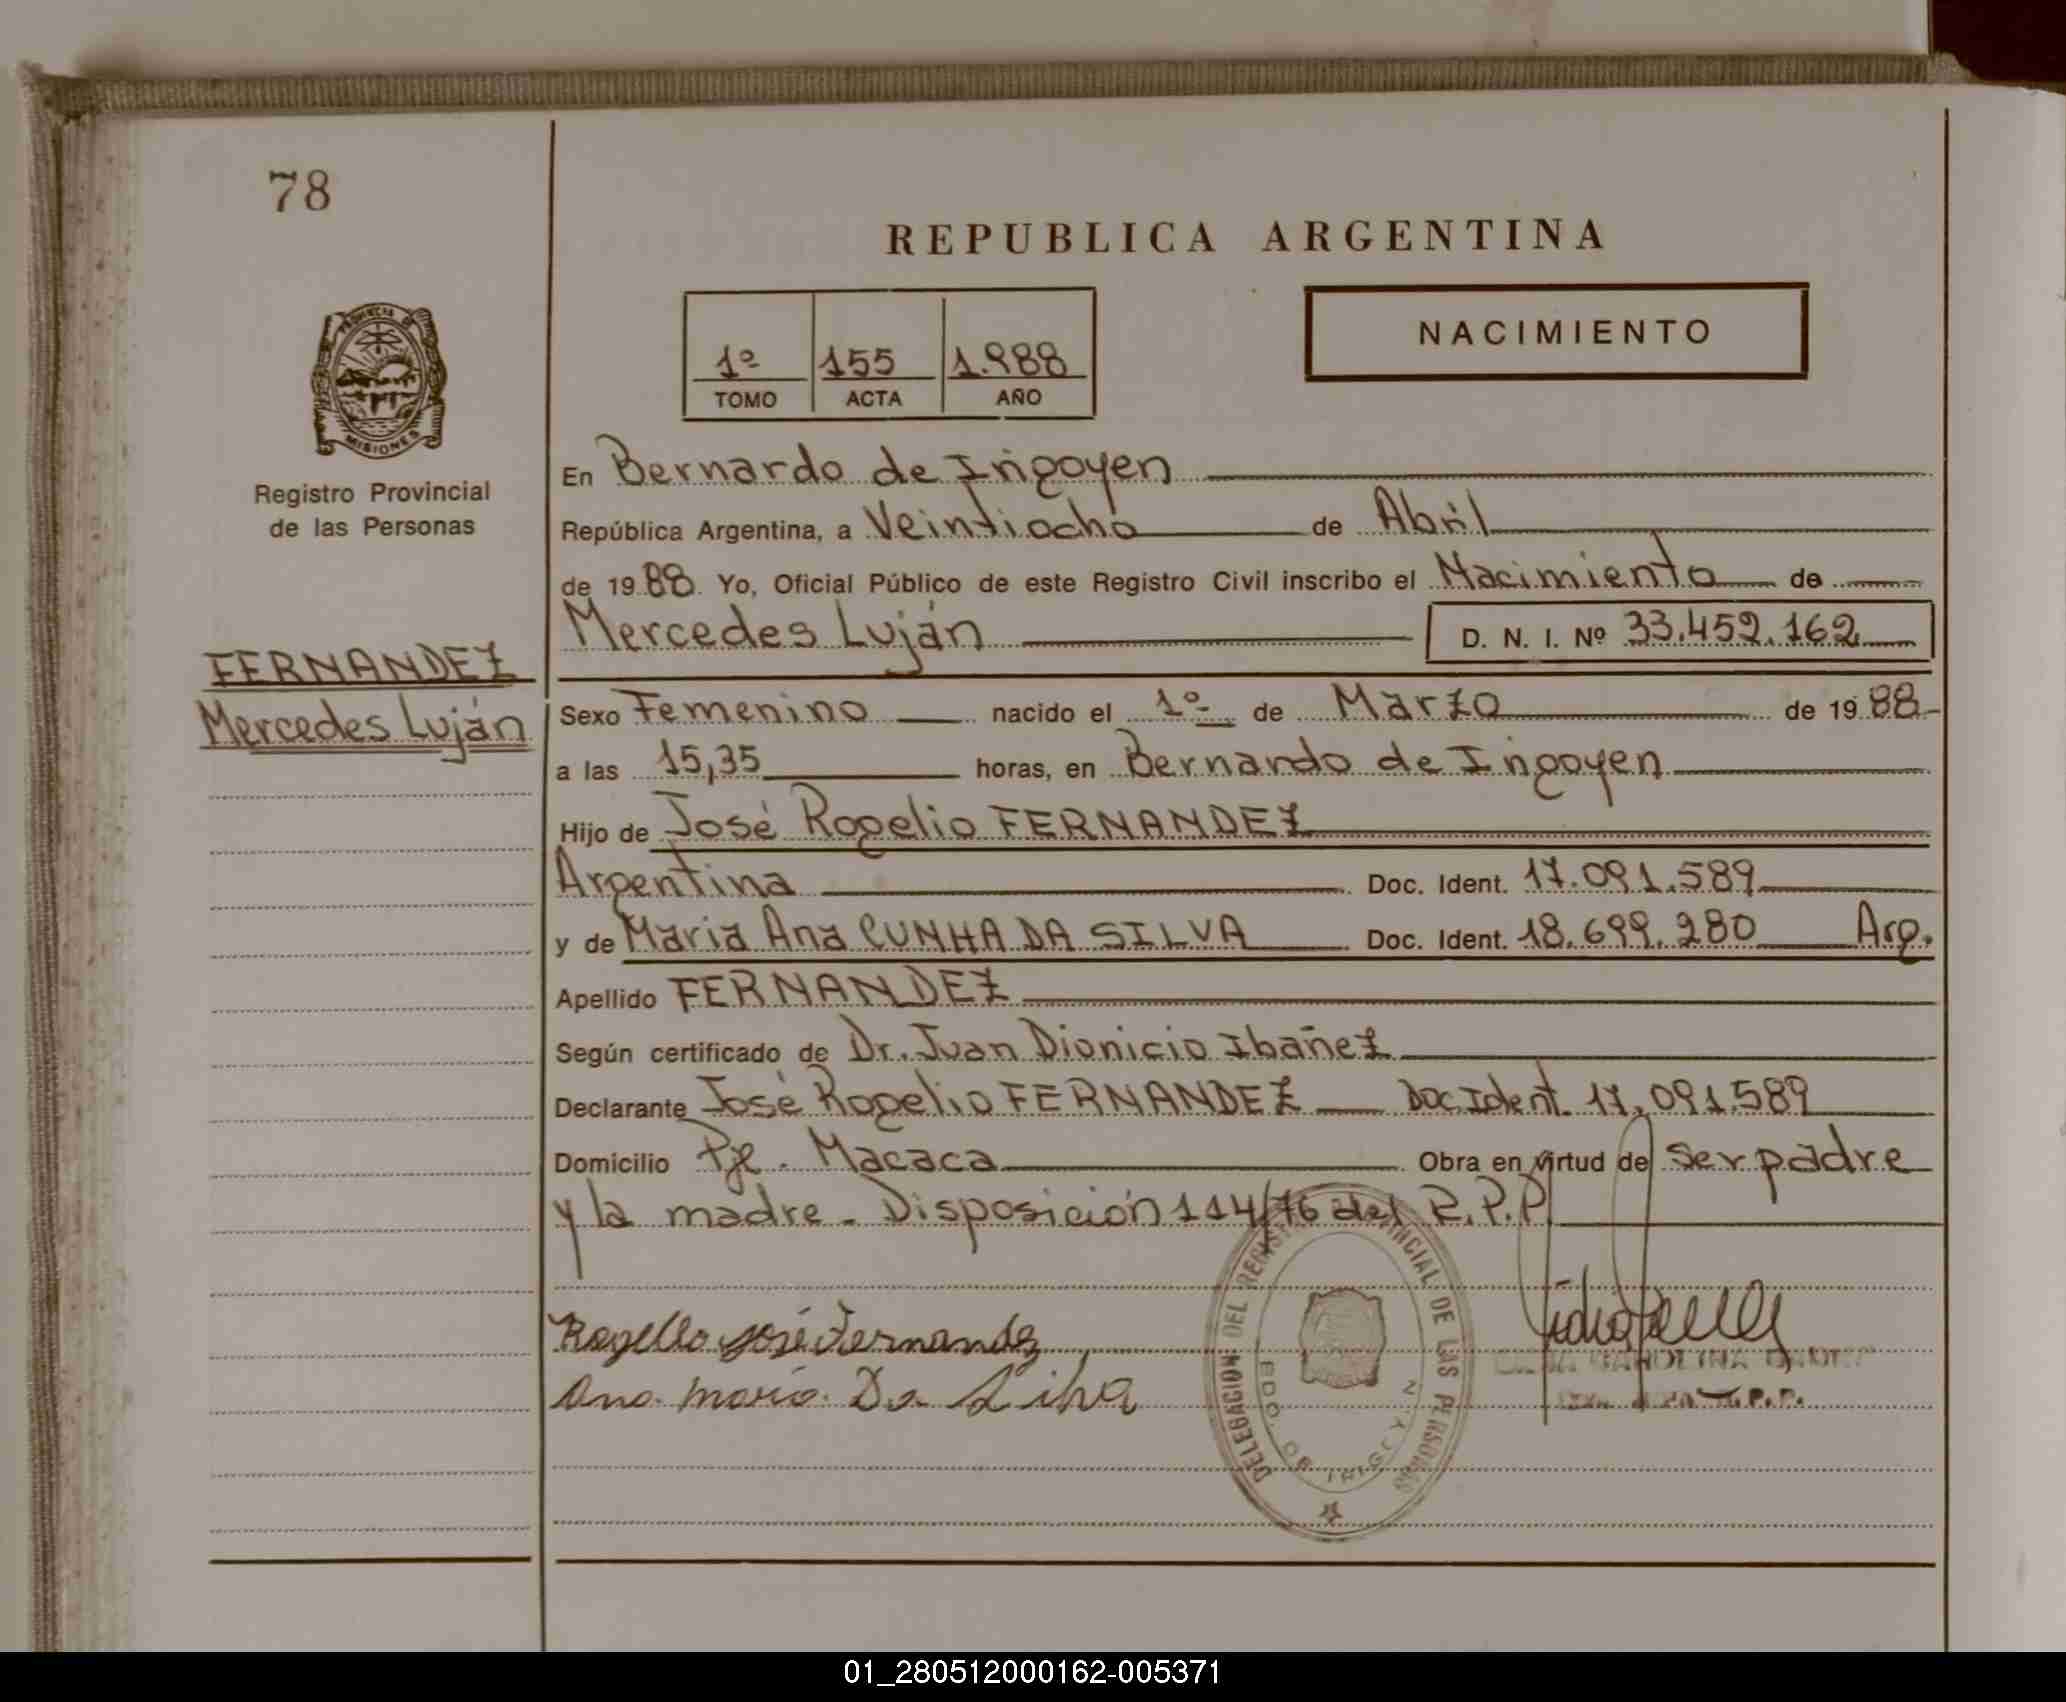 78
REPUBLICA ARGENTINA
NACIMIENTO
1º 155 1.988
TOMO ACTA AÑO
PROVINCIA DE
MISIONES
Registro Provincial
de las Personas
En Bernardo de Irigoyen
República Argentina, a Veintiocho de Abril
de 1988. Yo, Oficial Público de este Registro Civil inscribo el Nacimiento de
Mercedes Luján D. N. I. Nº 33.452.162
FERNANDEZ
Mercedes Luján
Sexo Femenino nacido el 1º de Marzo de 1988
a las 15,35 horas, en Bernardo de Irigoyen
Hijo de José Rogelio FERNANDEZ
Argentina Doc. Ident. 17.091.589
y de Maria Ana CUNHA DA SILVA Doc. Ident. 18.699.280 Arg.
Apellido FERNANDEZ
Según certificado de Dr. Juan Dionicio Ibañez
Declarante José Rogelio FERNANDEZ Doc Ident. 17.091.589
Domicilio Pje. Macaca Obra en virtud de ser padre
y la madre - Disposición 114/76 del R.P.P.
Rogelio José Fernandez
Ana Maria Da Silva
DELEGACION DEL REGISTRO PROVINCIAL DE LAS PERSONAS
BDO. DE IRIGOYEN
CAROLINA
01_280512000162-005371